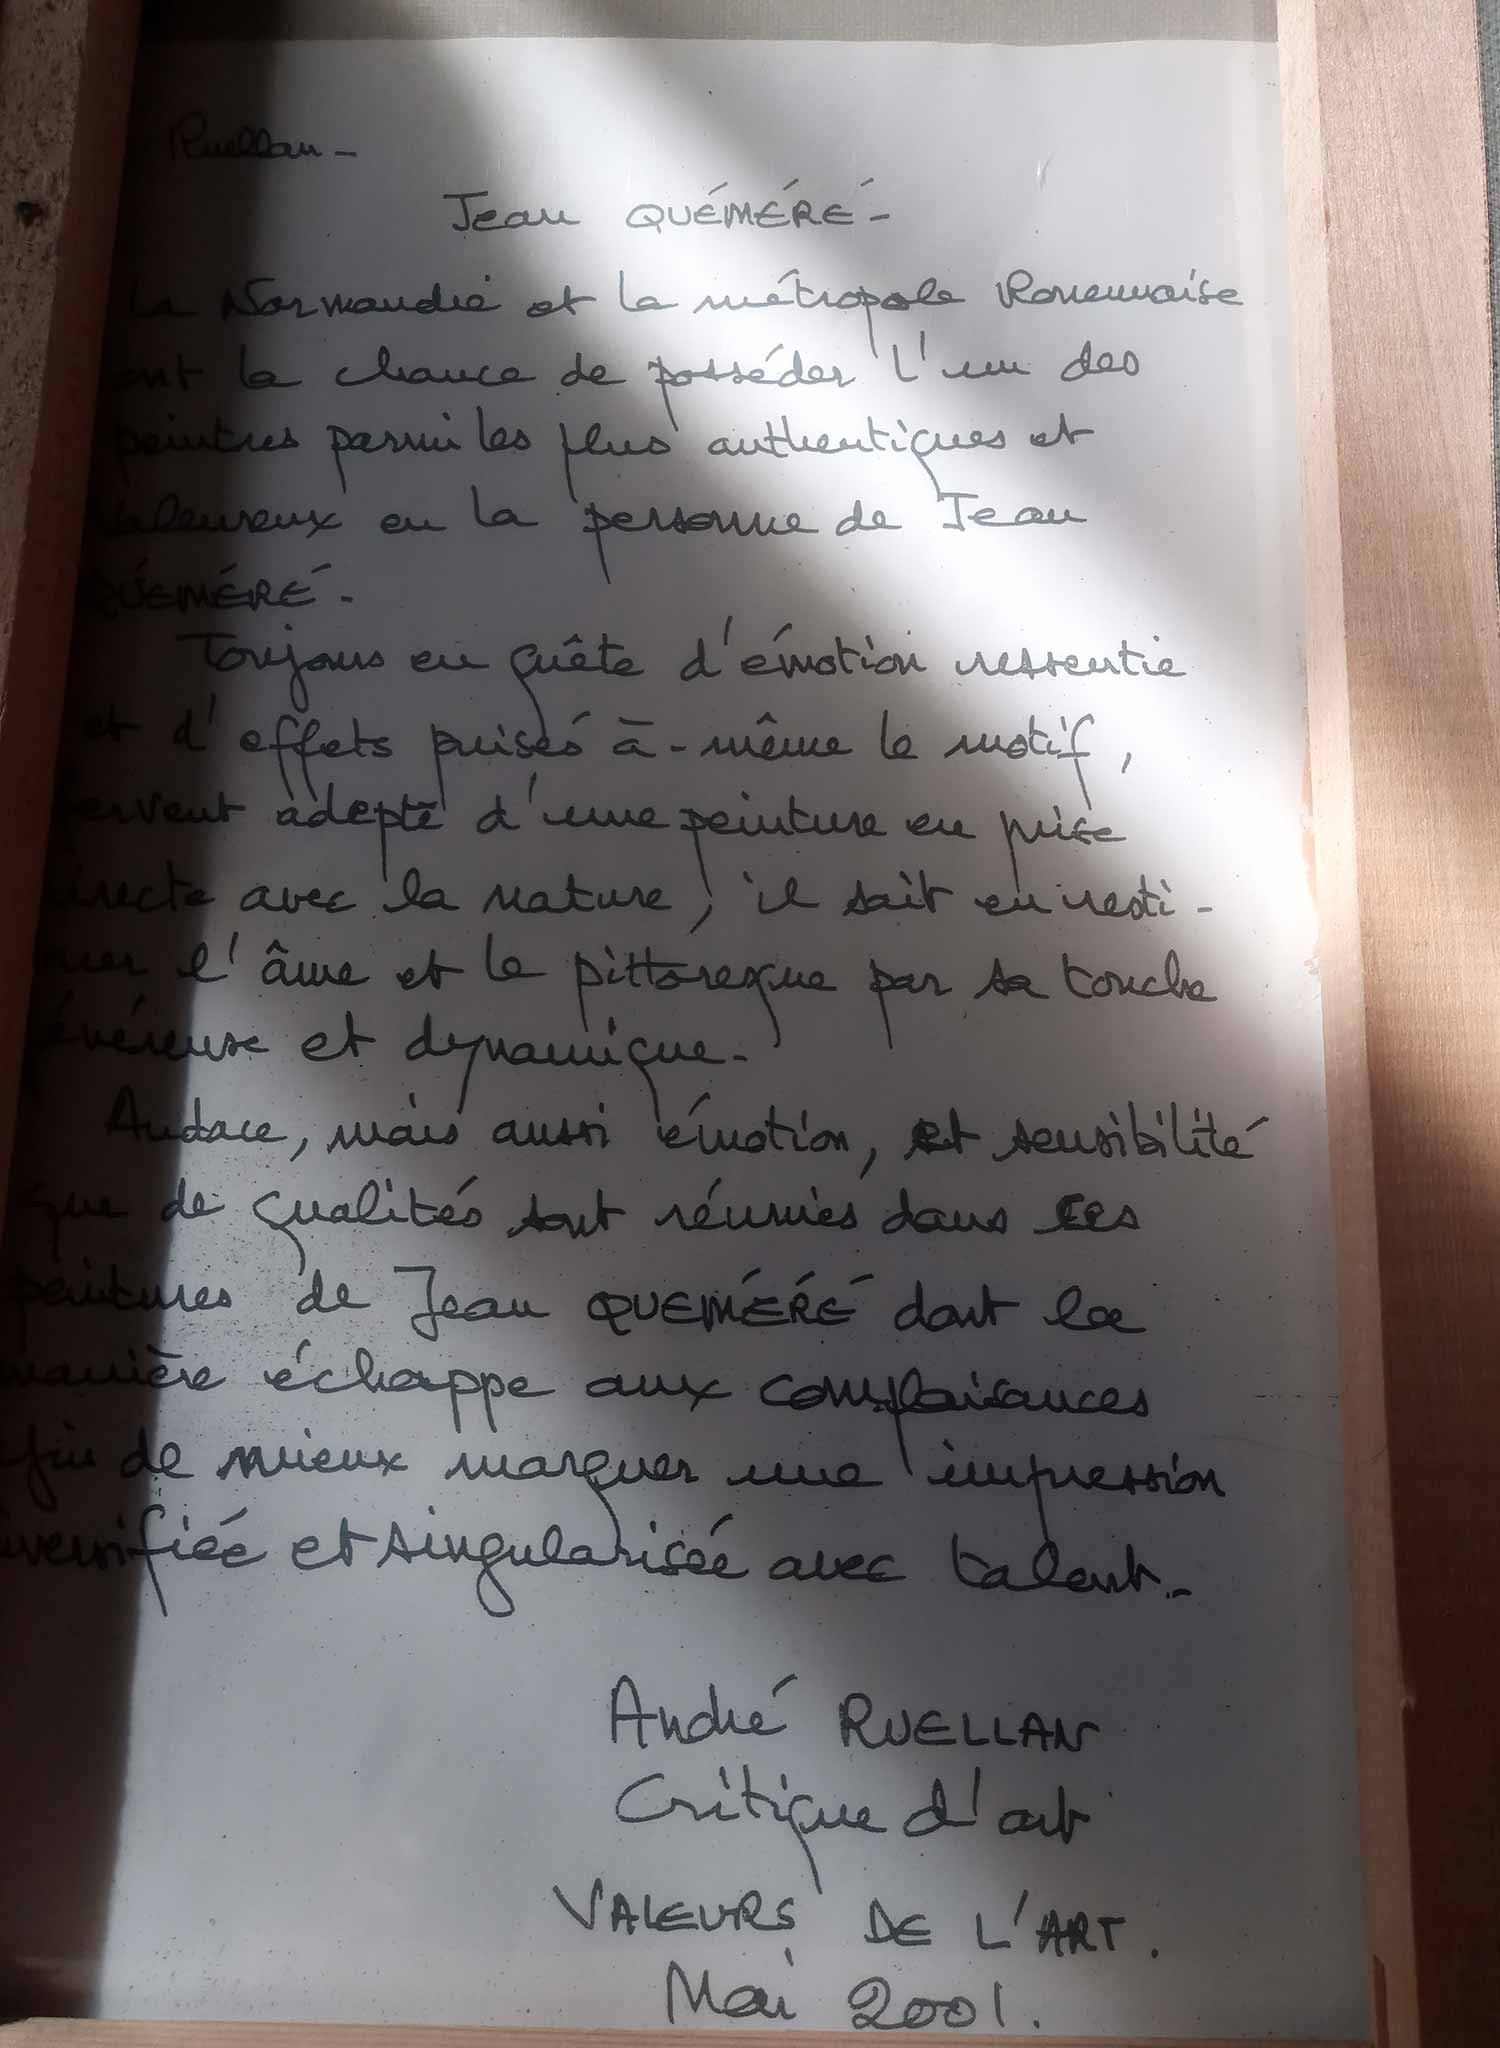 Ruellan -
Jean QUÉMÉRÉ -
La Normandie et la métropole Rouennaise
ont la chance de posséder l'un des
peintres parmi les plus authentiques et
valeureux en la personne de Jean
QUÉMÉRÉ -
Toujours en quête d'émotion ressentie
et d'effets puisés à-même le motif,
fervent adepte d'une peinture en prise
directe avec la nature, il sait en resti-
tuer l'âme et le pittoresque par sa touche
généreuse et dynamique -
Audace, mais aussi émotion, et sensibilité
que de qualités sont réunies dans les
peintures de Jean QUEMÉRÉ dont la
manière échappe aux complaisances
afin de mieux marquer une impression
diversifiée et singularisée avec talent -
André RUELLAN
Critique d'art
VALEURS DE L'ART.
Mai 2001.